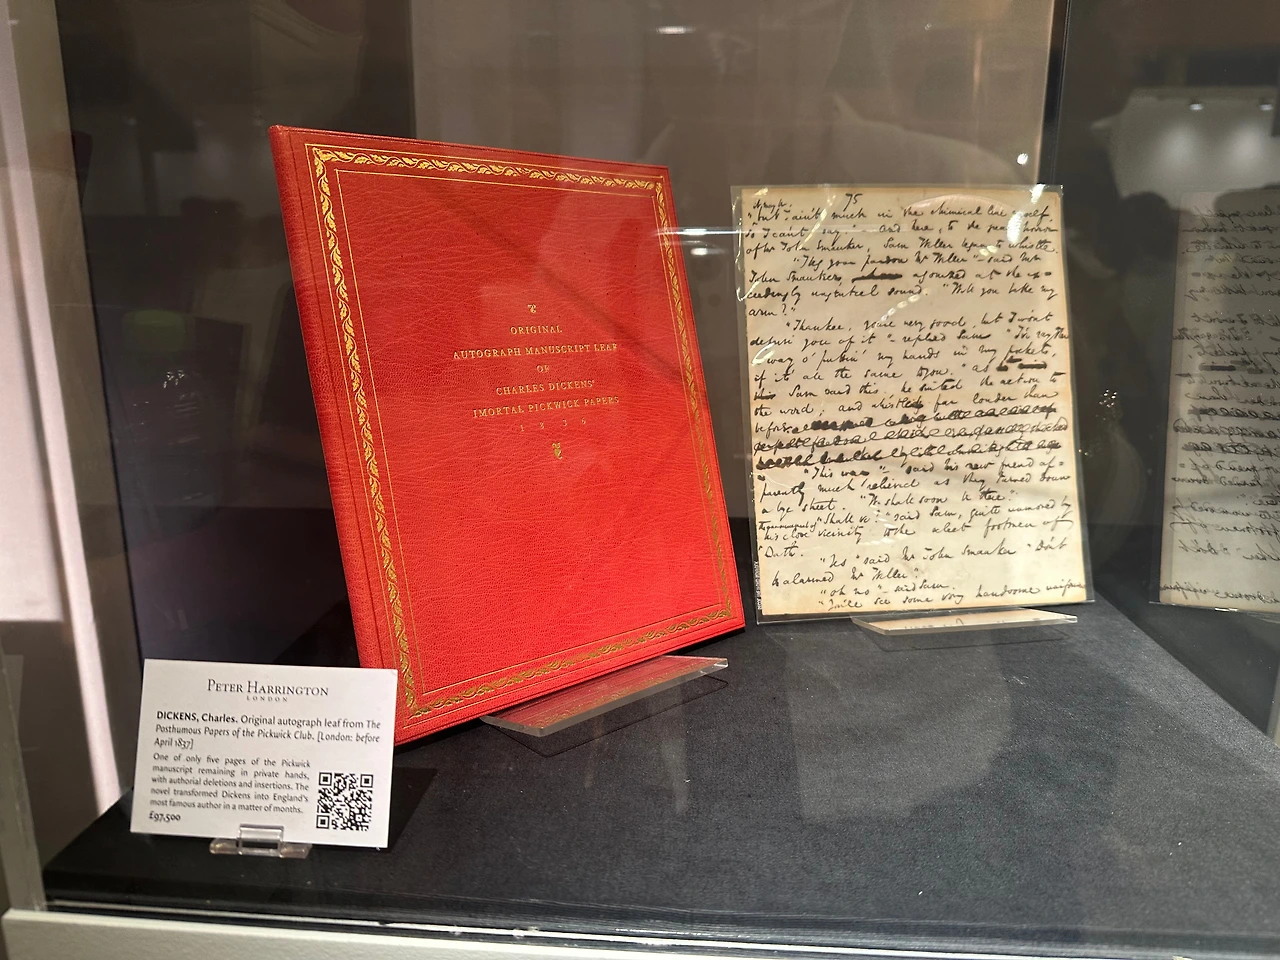 ORIGINAL
AUTOGRAPH MANUSCRIPT LEAF
OF
CHARLES DICKENS'
IMORTAL PICKWICK PAPERS
1836
75
"but I ain't much in the chimical line myself,
so I can't say" – and here, to the great horror
of Mr John Smauker, Sam Weller began to whistle.
"I beg your pardon Mr Weller" said Mr
John Smauker, agonized at the ex-
ceedingly ungenteel sound. "Will you take my
arm?"
"Thankee, you're very good, but I won't
deprive you of it" – replied Sam "I've rayther
a way o' puttin' my hands in my pockets,
if it's all the same to you." As
Sam said this, he suited the action to
the word; and whistled far louder than
before.
"This way", said his new friend ap-
parently much relieved as they turned down
a bye street. "We shall soon be there."
"Shall we?" said Sam, quite unmoved by
the announcement of
his close vicinity to the select footmen of
Bath.
"Yes" said Mr John Smauker "Don't
be alarmed Mr Weller".
"Oh no" – said Sam.
"You'll see some very handsome uniforms
PETER HARRINGTON
LONDON
DICKENS, Charles. Original autograph leaf from The
Posthumous Papers of the Pickwick Club. [London: before
April 1837]
One of only five pages of the Pickwick
manuscript remaining in private hands,
with authorial deletions and insertions. The
novel transformed Dickens into England's
most famous author in a matter of months.
£97,500